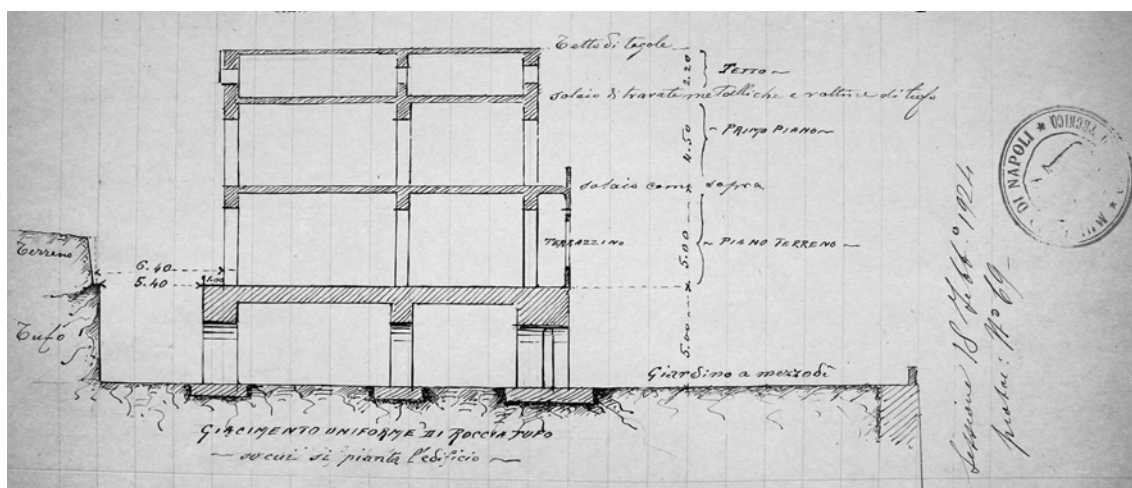 Tetto di tegole
2.20
TETTO
solaio di travate metalliche e voltine di tufo
4.50
PRIMO PIANO
solaio come sopra
Terreno
6.40
5.40
1.00
TERRAZZINO
5.00
PIANO TERRENO
Tufo
5.00
Giardino a mezzodì
GIACIMENTO UNIFORME DI ROCCIA TUFO
su cui si pianta l'edificio
DI NAPOLI
TECNICO
Sessione 18 febb.º 1924
Nº 69